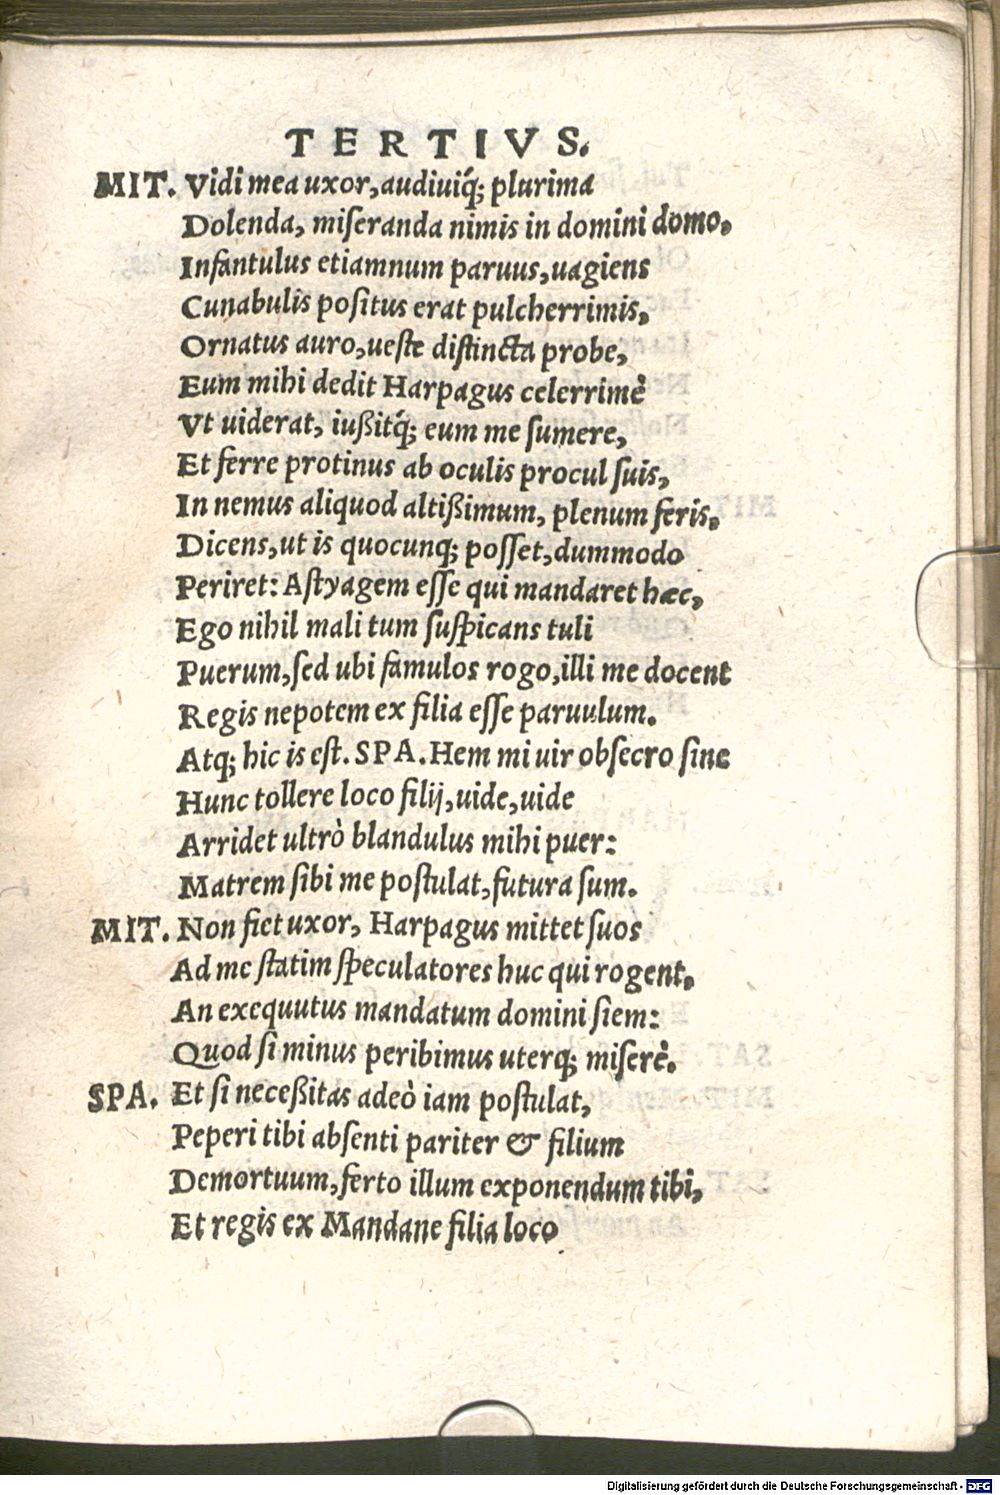 TERTIVS.
MIT. Vidi mea uxor, audiuiq́; plurima
Dolenda, miſeranda nimis in domini domo,
Infantulus etiamnum paruus, uagiens
Cunabulis poſitus erat pulcherrimis,
Ornatus auro, ueſte diſtincta probe,
Eum mihi dedit Harpagus celerrimè
Vt uiderat, iußitq́; eum me ſumere,
Et ferre protinus ab oculis procul ſuis,
In nemus aliquod altißimum, plenum feris,
Dicens, ut is quocunq; poſſet, dummodo
Periret: Aſtyagem eſſe qui mandaret hæc,
Ego nihil mali tum ſuſpicans tuli
Puerum, ſed ubi famulos rogo, illi me docent
Regis nepotem ex filia eſſe paruulum.
Atq; hic is eſt. SPA. Hem mi uir obſecro ſine
Hunc tollere loco filij, uide, uide
Arridet ultrò blandulus mihi puer:
Matrem ſibi me poſtulat, futura ſum.
MIT. Non fiet uxor, Harpagus mittet ſuos
Ad me ſtatim ſpeculatores huc qui rogent,
An exequutus mandatum domini ſiem:
Quod ſi minus peribimus uterq; miſerè.
SPA. Et ſi neceßitas adeò iam poſtulat,
Peperi tibi abſenti pariter & filium
Demortuum, ferto illum exponendum tibi,
Et regis ex Mandane filia loco
Digitalisierung gefördert durch die Deutsche Forschungsgemeinschaft - DFG